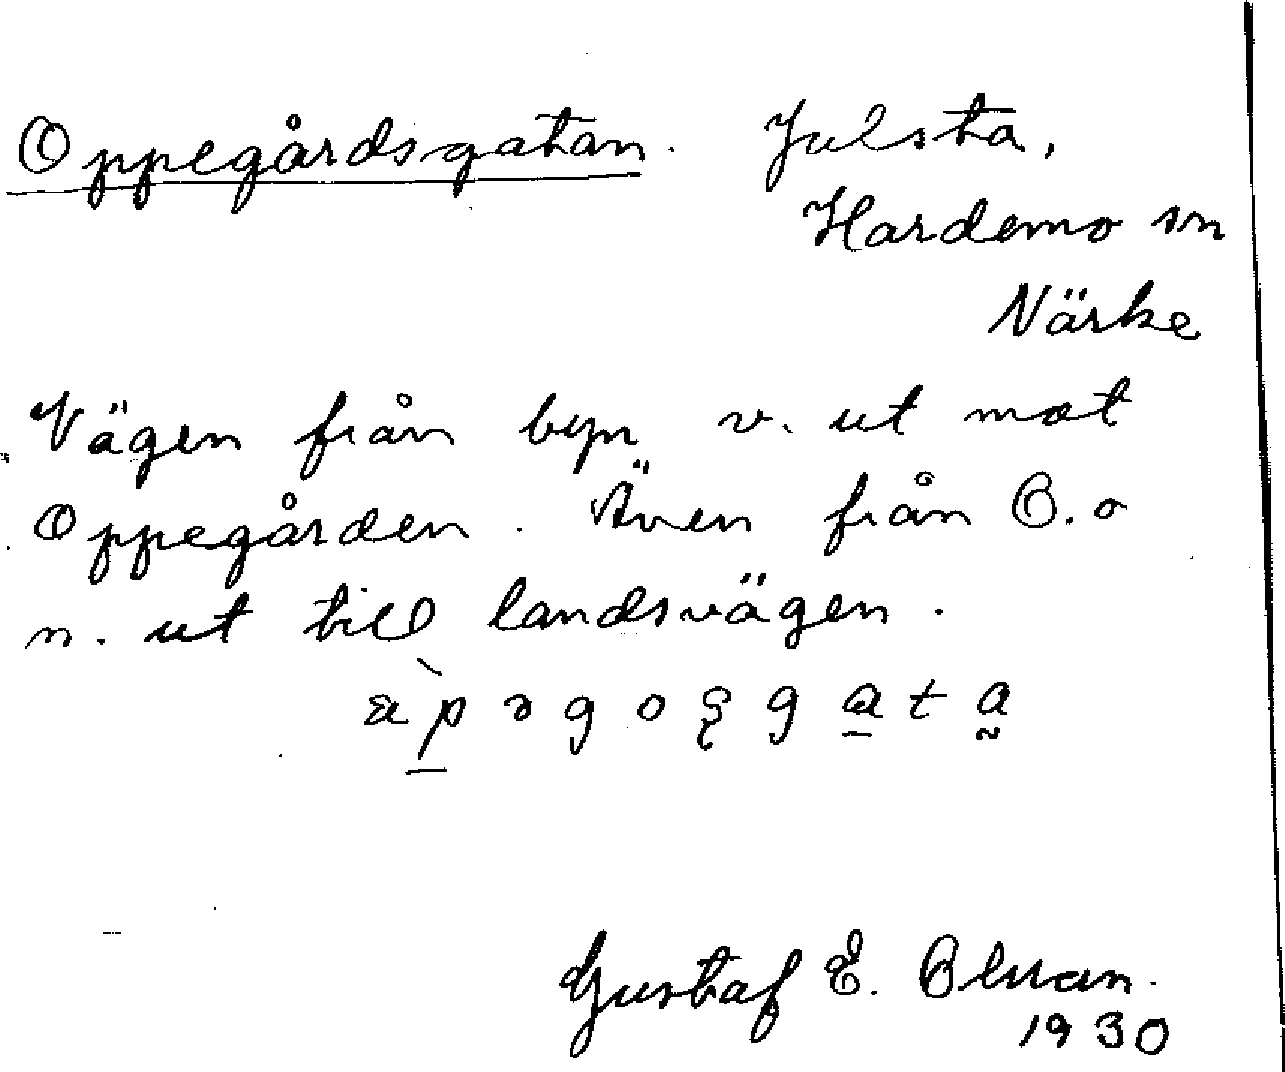 Oppegårdsgatan. Julsta,
Hardemo sn
Närke
Vägen från byn v. ut mot
Oppegården. Även från O. o
n. ut till landsvägen.
Gustaf E.
1930